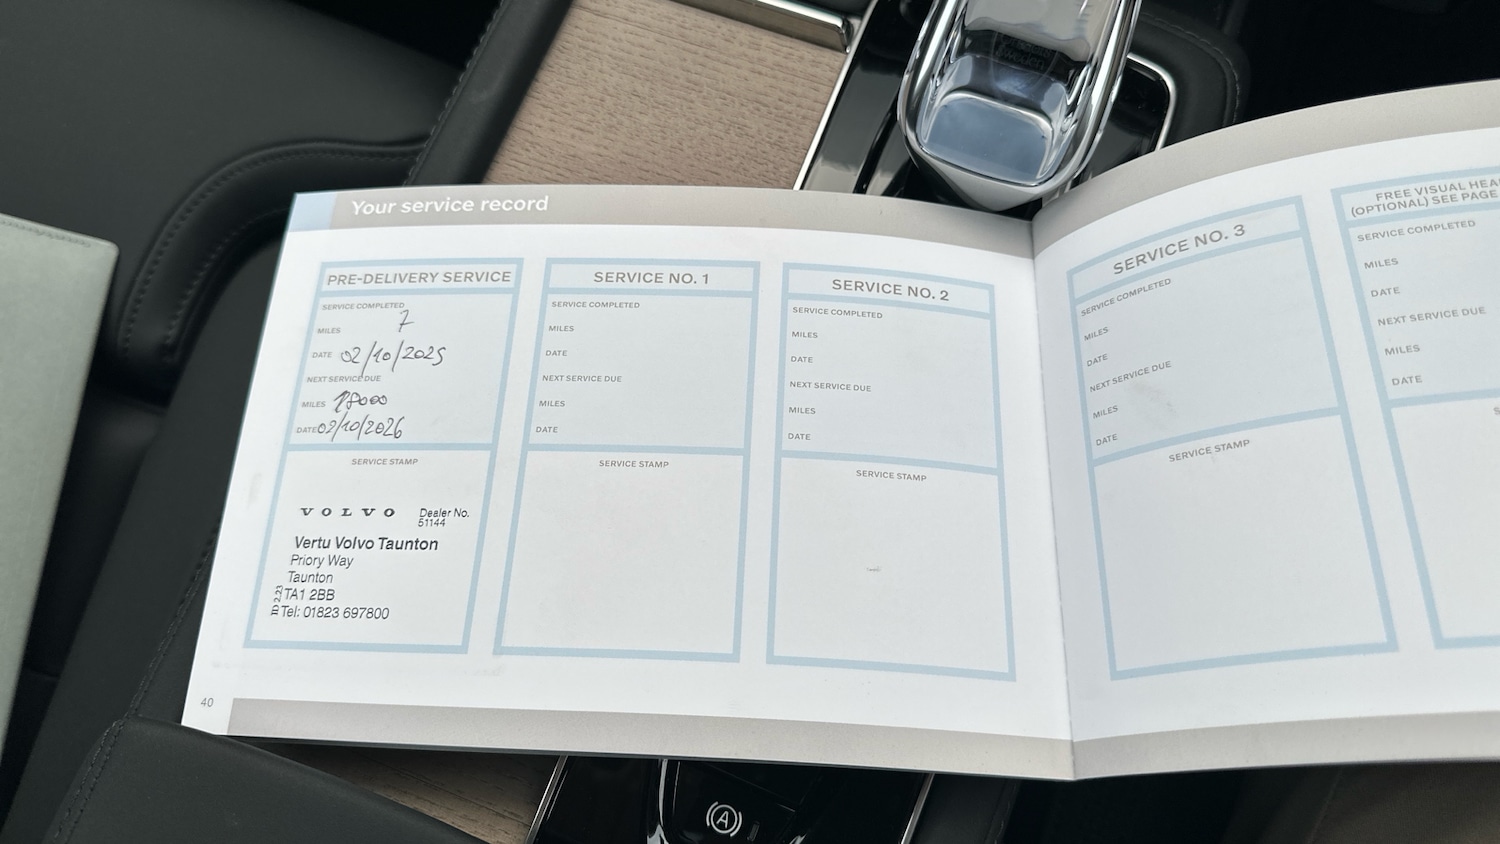 Sweden
Your service record
PRE-DELIVERY SERVICE
SERVICE COMPLETED
MILES 7
DATE 02/10/2025
NEXT SERVICE DUE
MILES 18000
DATE 02/10/2026
SERVICE STAMP
VOLVO
Dealer No.
51144
Vertu Volvo Taunton
Priory Way
Taunton
TA1 2BB
Tel: 01823 697800
ID 2.23
SERVICE NO. 1
SERVICE COMPLETED
MILES
DATE
NEXT SERVICE DUE
MILES
DATE
SERVICE STAMP
SERVICE NO. 2
SERVICE COMPLETED
MILES
DATE
NEXT SERVICE DUE
MILES
DATE
SERVICE STAMP
40
SERVICE NO. 3
SERVICE COMPLETED
MILES
DATE
NEXT SERVICE DUE
MILES
DATE
SERVICE STAMP
FREE VISUAL
(OPTIONAL) SEE PAGE
SERVICE COMPLETED
MILES
DATE
NEXT SERVICE DUE
MILES
DATE
A